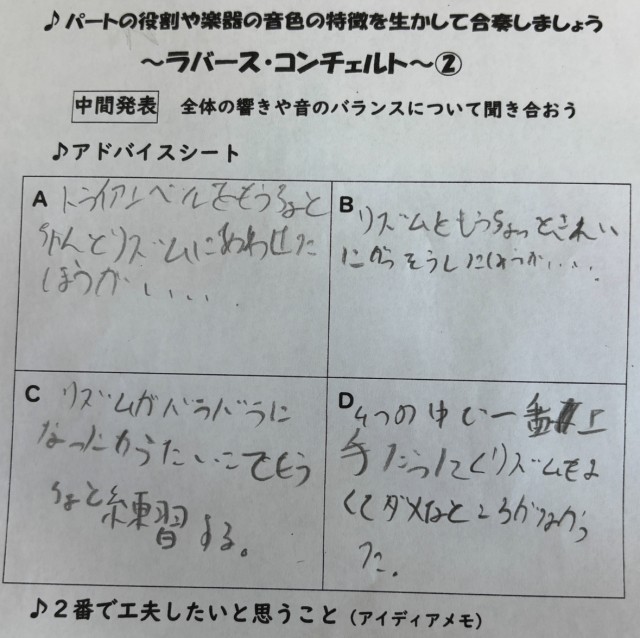 ♪パートの役割や楽器の音色の特徴を生かして合奏しましょう
～ラバース・コンチェルト～②
中間発表 全体の響きや音のバランスについて聞き合おう
♪アドバイスシート
A トライアンベルをもうちょと
ちゃんとリズムにあわせた
ほうがいい、、
B リズムともうちょっときれい
にがっそうしたほうがい、、、
C リズムがバラバラに
なったからたいこでもう
ちょと練習する。
D 4つの中で一番上
手だったしてくリズムもよ
くてダメなところがなかっ
た。
♪２番で工夫したいと思うこと（アイディアメモ）